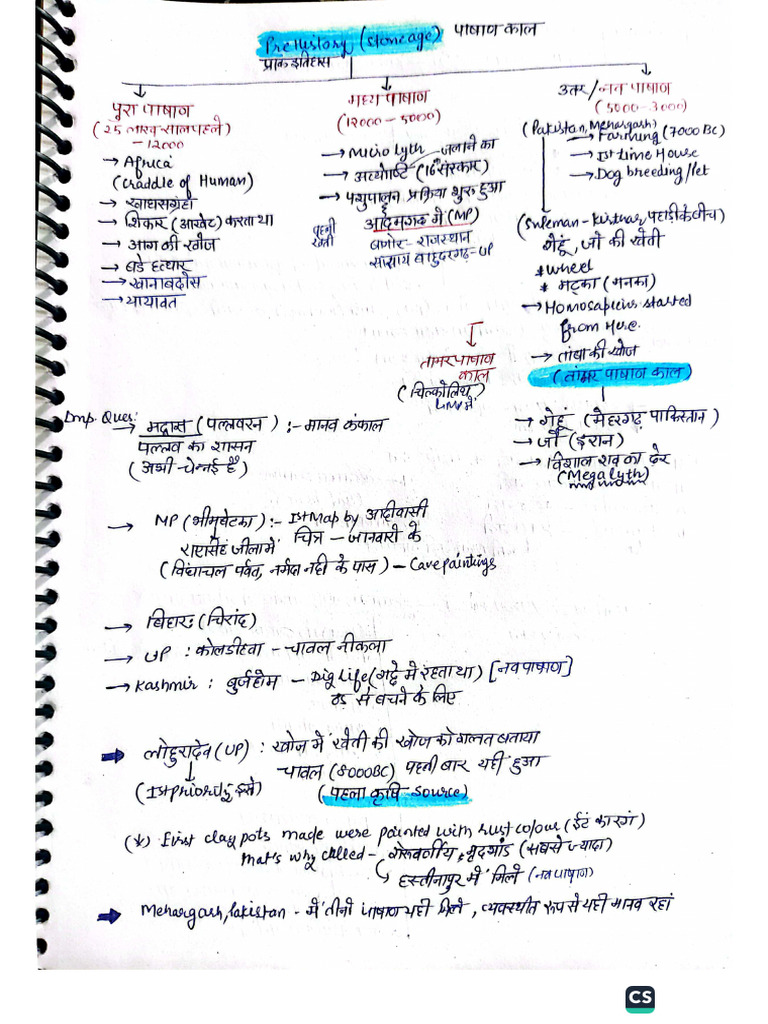 Prehistory (stoneage) पाषाण काल
प्राक इतिहास
पूरा पाषाण
(25 लाख साल पहले)
-12000
→ Africa
(Craddle of Human)
→ खाद्यसंग्रहा
→ शिकार (आखेट) करता था
→ आग की खोज
→ बडे हत्यार
→ खानाबदोस
→ यायावत
मध्य पाषाण
(12000-5000)
→ Micro lyth जलाने का
→ अन्त्येष्टि (16वा संस्कार)
→ पशुपालन प्रक्रिया शुरु हुआ
आदमगढ़ में (MP)
पहली खेती
बगोर- राजस्थान
सराय - UP
उत्तर/नव पाषाण
(5000-3000)
(Pakistan, Mehargarh)
→ Farming (7000 BC)
→ Ist time House
→ Dog breeding/Pet
(Suleman - Kirthar, पहाड़ी के बीच)
गेहूं, जौ की खेती
* wheel
* मटका (मनका)
→ Homosapiens started
from Here.
→ तांबा की खोज
(तांमर पाषाण काल)
→ गेहूं (मेहरगढ़ पाकिस्तान)
→ जौ (ईरान)
→ विशाल शव का ढेर
(Megalyth)
तामर पाषाण
काल
(चिल्कोलिथ)
Imp. Ques:
→ मद्रास (पल्लवरन) :- मानव कंकाल
पल्लव का शासन
(अभी-चेन्नई है)
→ MP (भीमबेटका) :- Ist Map by आदीवासी
जीला में चित्र - जानवारो के
(विंघाचल पर्वत, नर्मदा नदी के पास) - Cave paintings
→ बिहार: (चिरांद)
→ UP : कोलडीहवा - चावल नीकला
→ Kashmir : बुर्जहोम - Dig Life (गड्ढे में रहता था) [नव पाषाण]
ठंड से बचने के लिए
→ लोहुरादेव (UP) : खोज में खेती की खोज को गलत बताया
चावल (8000BC) पहली बार यही हुआ
(Ist priority इसे)
(पहला कृषि - Source)
(*) First clay pots made were painted with rust colour (ईंट का रंग)
that's why called - गेरुवर्णीय मृदभांड (सबसे ज्यादा)
हस्तीनापुर में मिले (नव पाषाण)
→ Mehargarh, Pakistan - में तीनो पाषाण यही मिले, व्यवस्थीत रूप से यही मानव रहा
CS